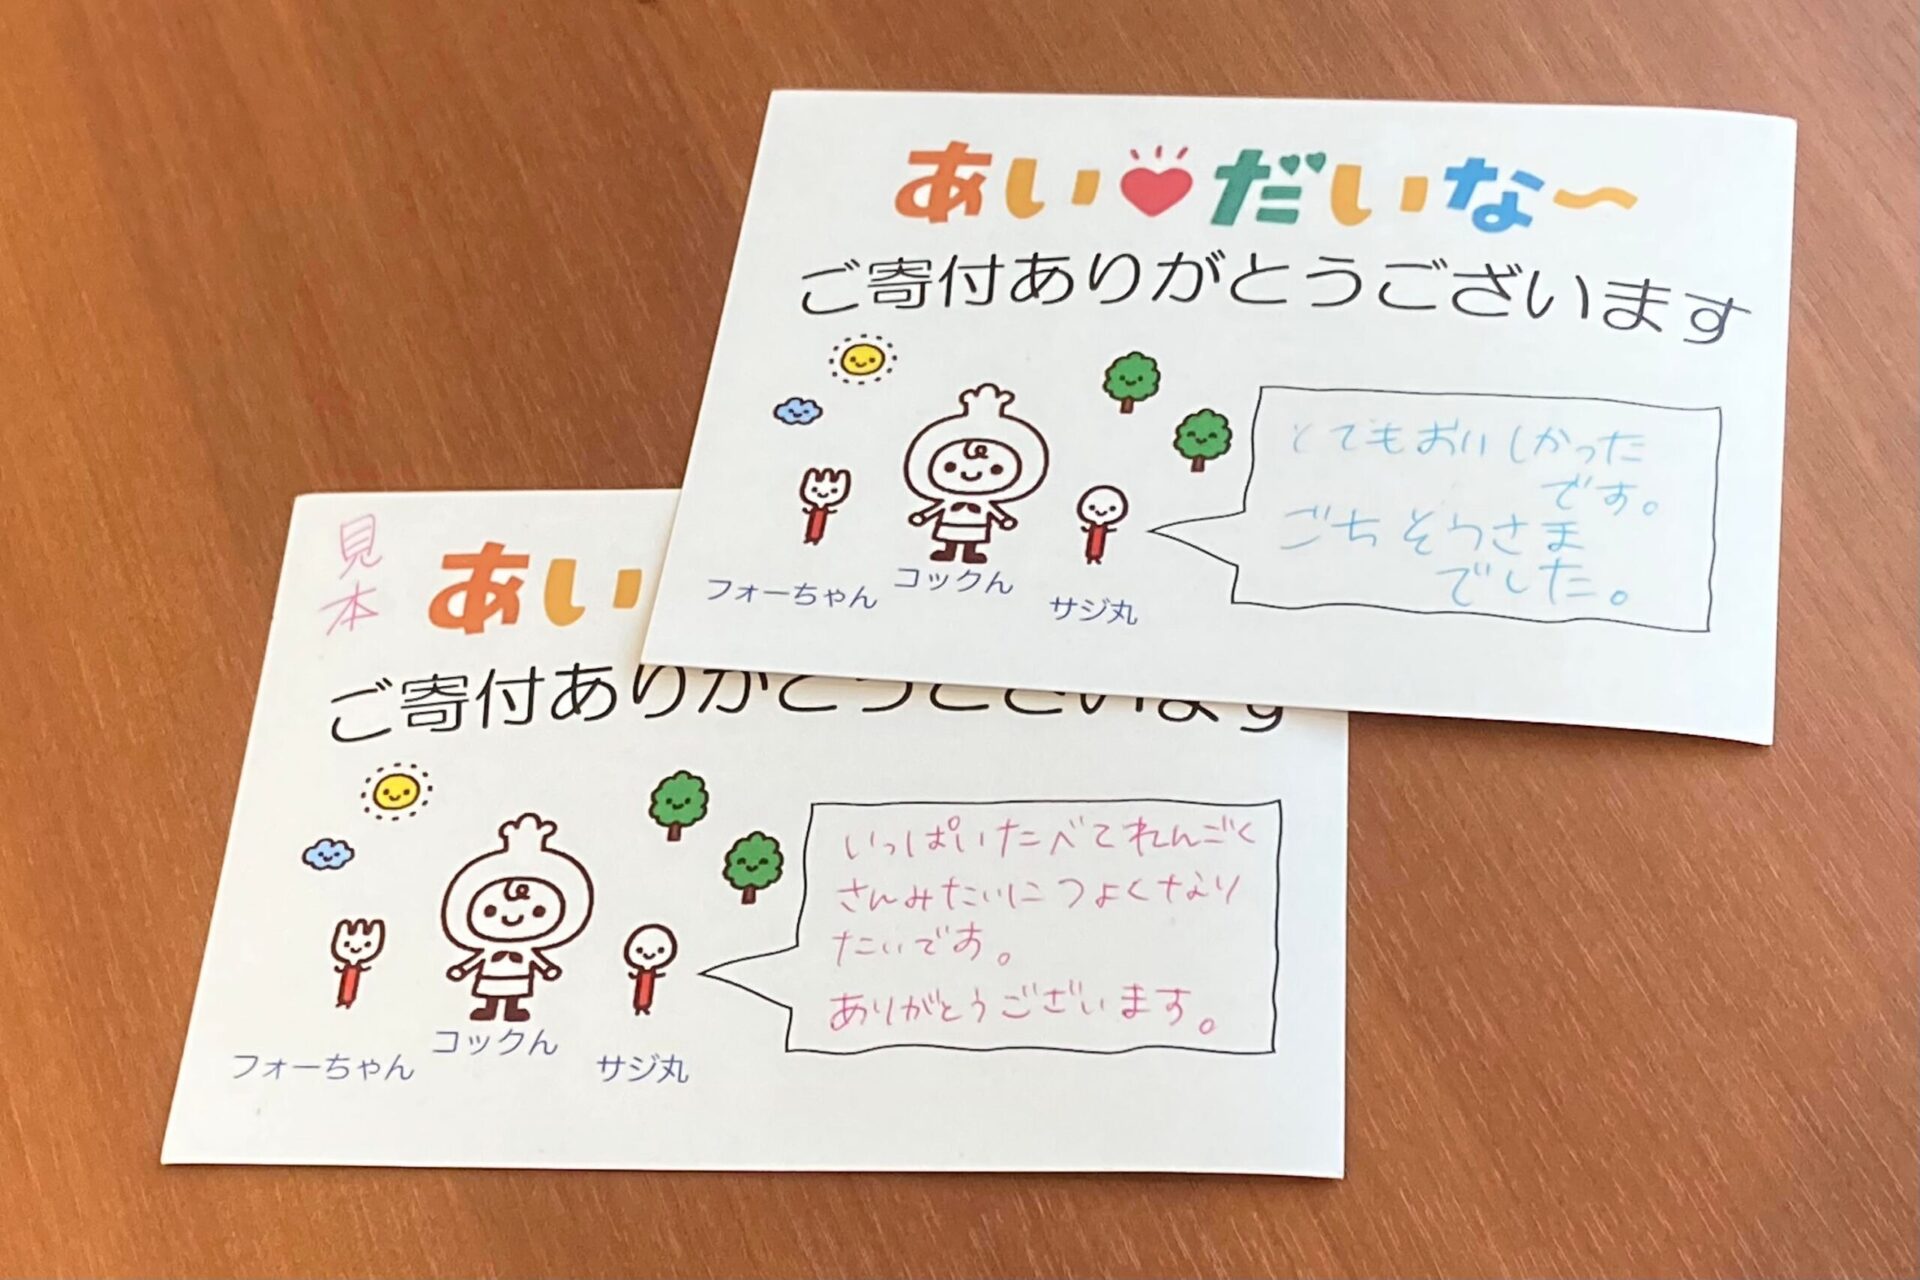 あい だいな〜
ご寄付ありがとうございます
とてもおいしかった
です。
ごちそうさま
でした。
フォーちゃん
コックん
サジ丸
見本
あい
ご寄付ありがとうございます
いっぱいたべてれんごく
さんみたいにつよくなり
たいです。
ありがとうございます。
フォーちゃん
コックん
サジ丸